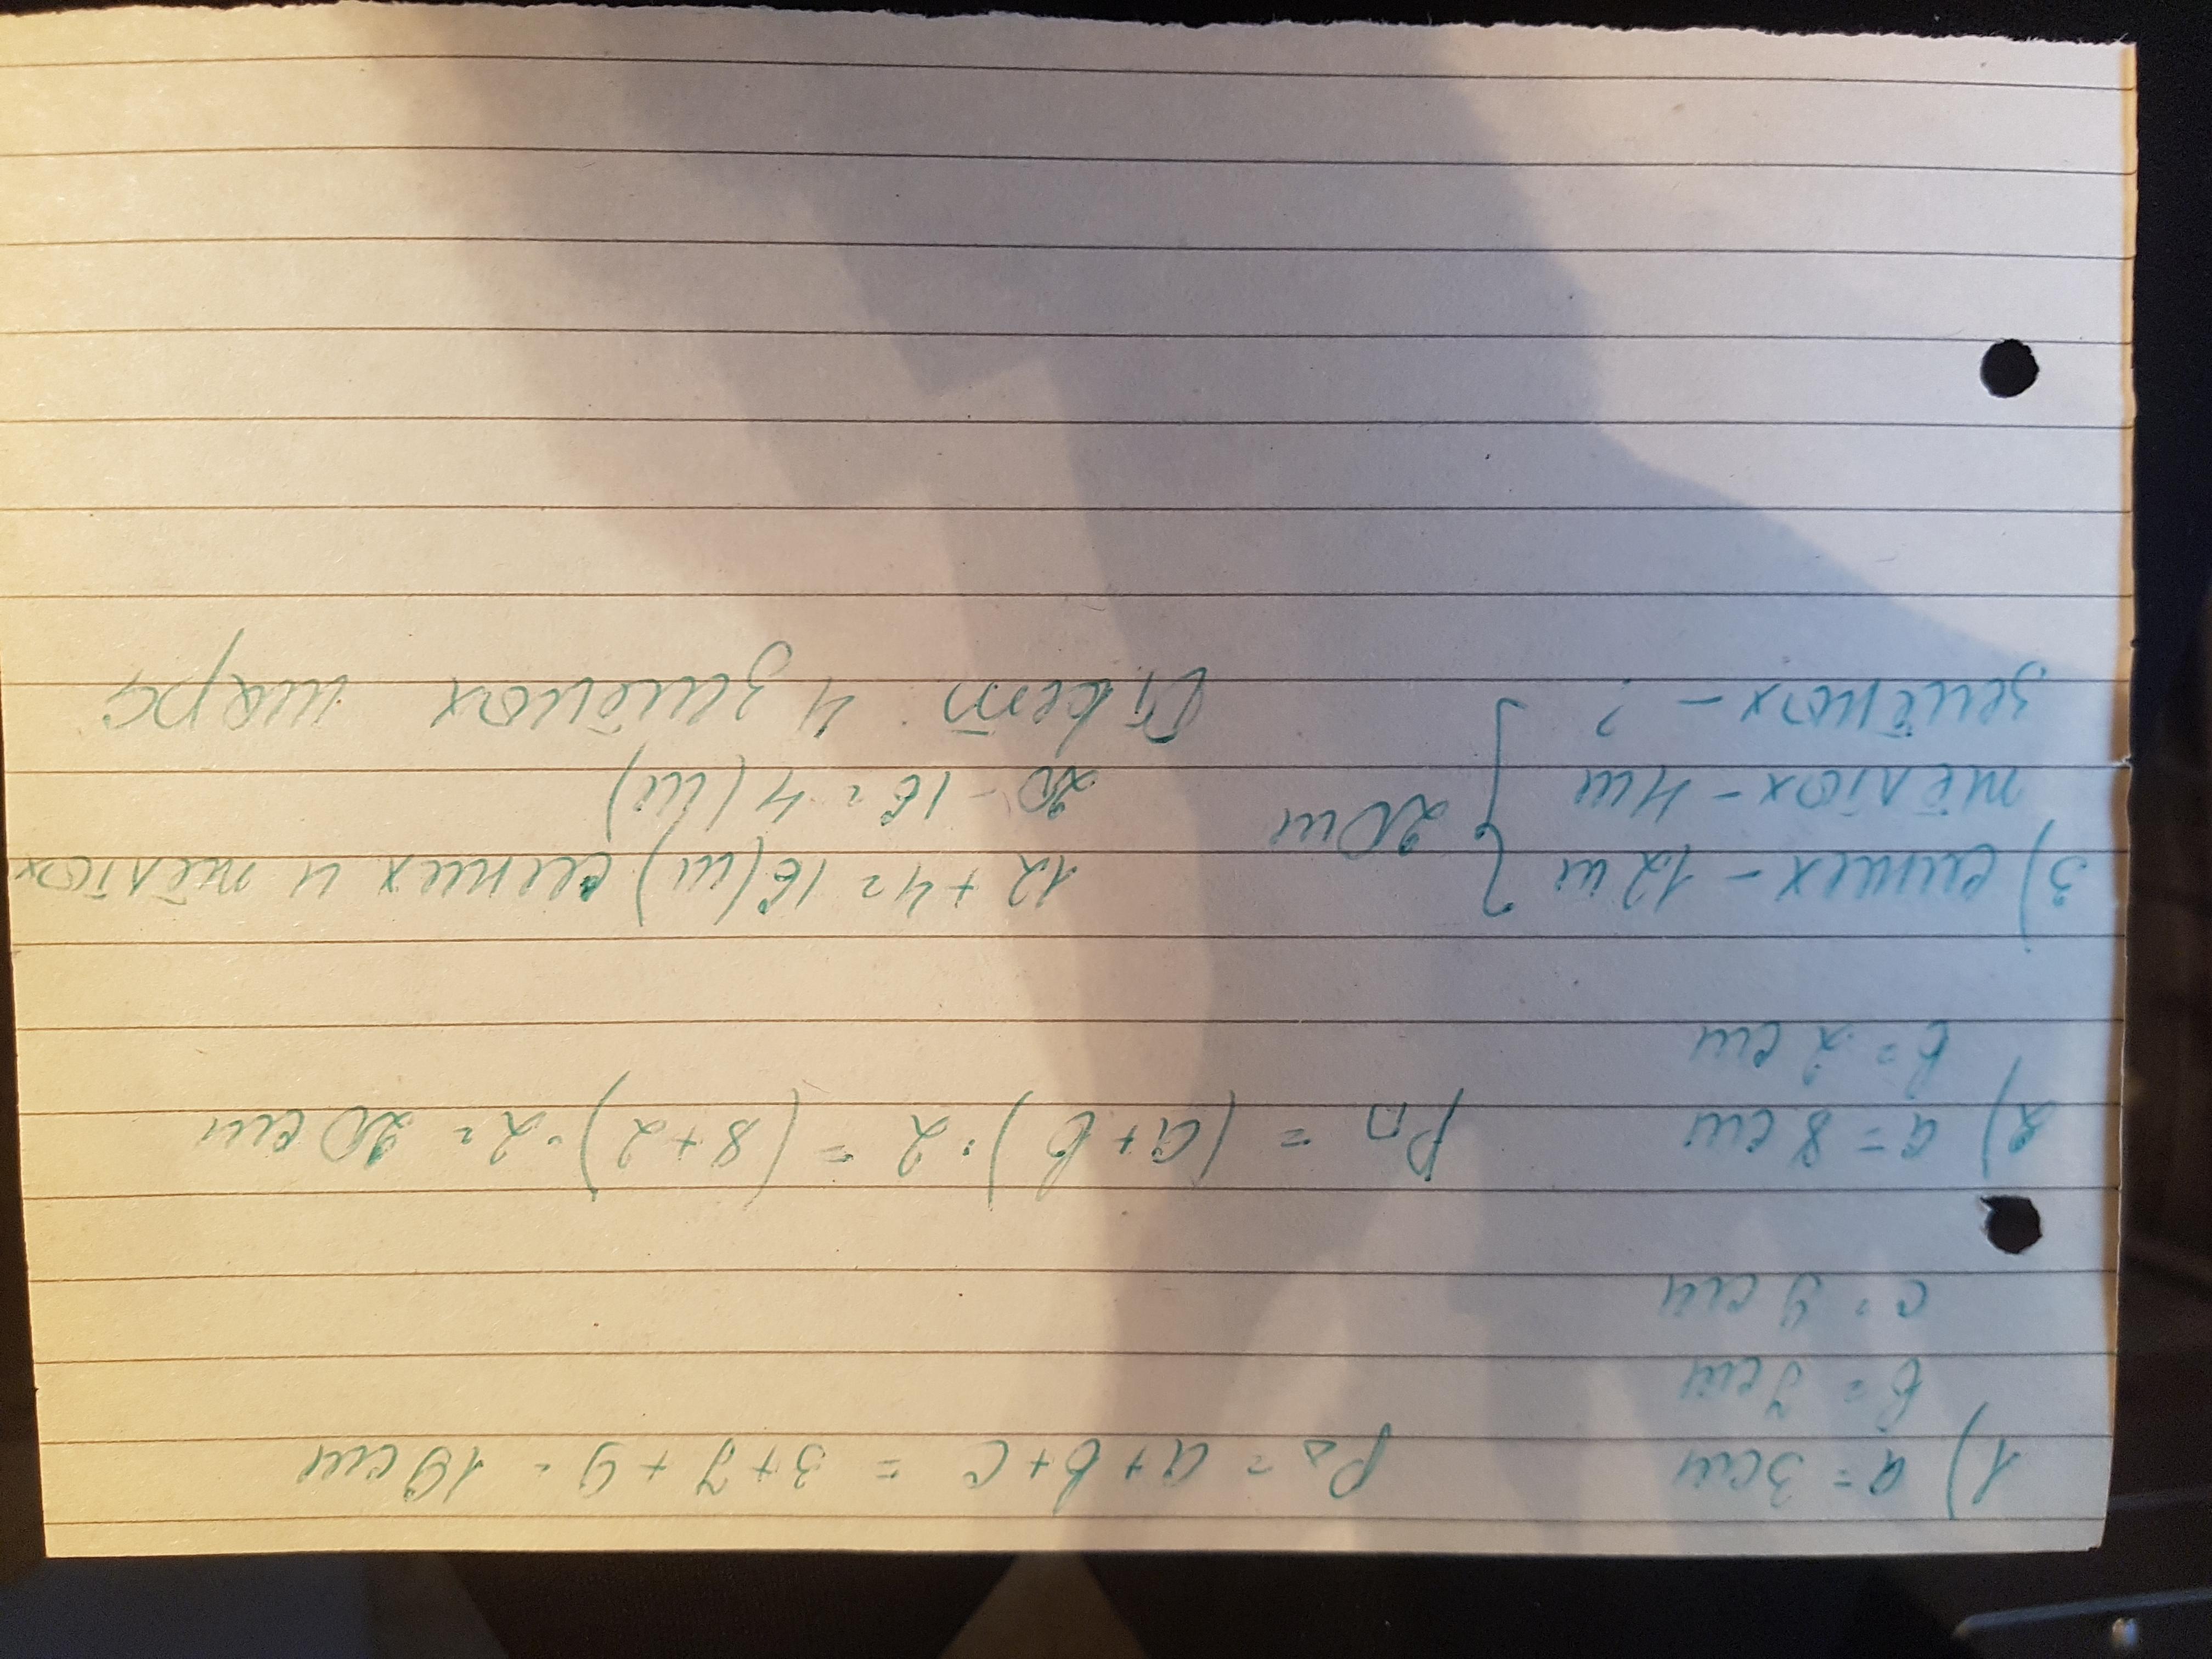 1) a = 3 см P△ = a + b + c = 3 + 7 + 9 = 19 см
b = 7 см
c = 9 см
2) a = 8 см P□ = (a + b) · 2 = (8 + 2) · 2 = 20 см
b = 2 см
3) синих – 12 ш } 20 ш 12 + 4 = 16 (ш) синих и жёлтых
жёлтых – 4 ш 20 – 16 = 4 (ш)
зелёных – ? Ответ: 4 зелёных шара